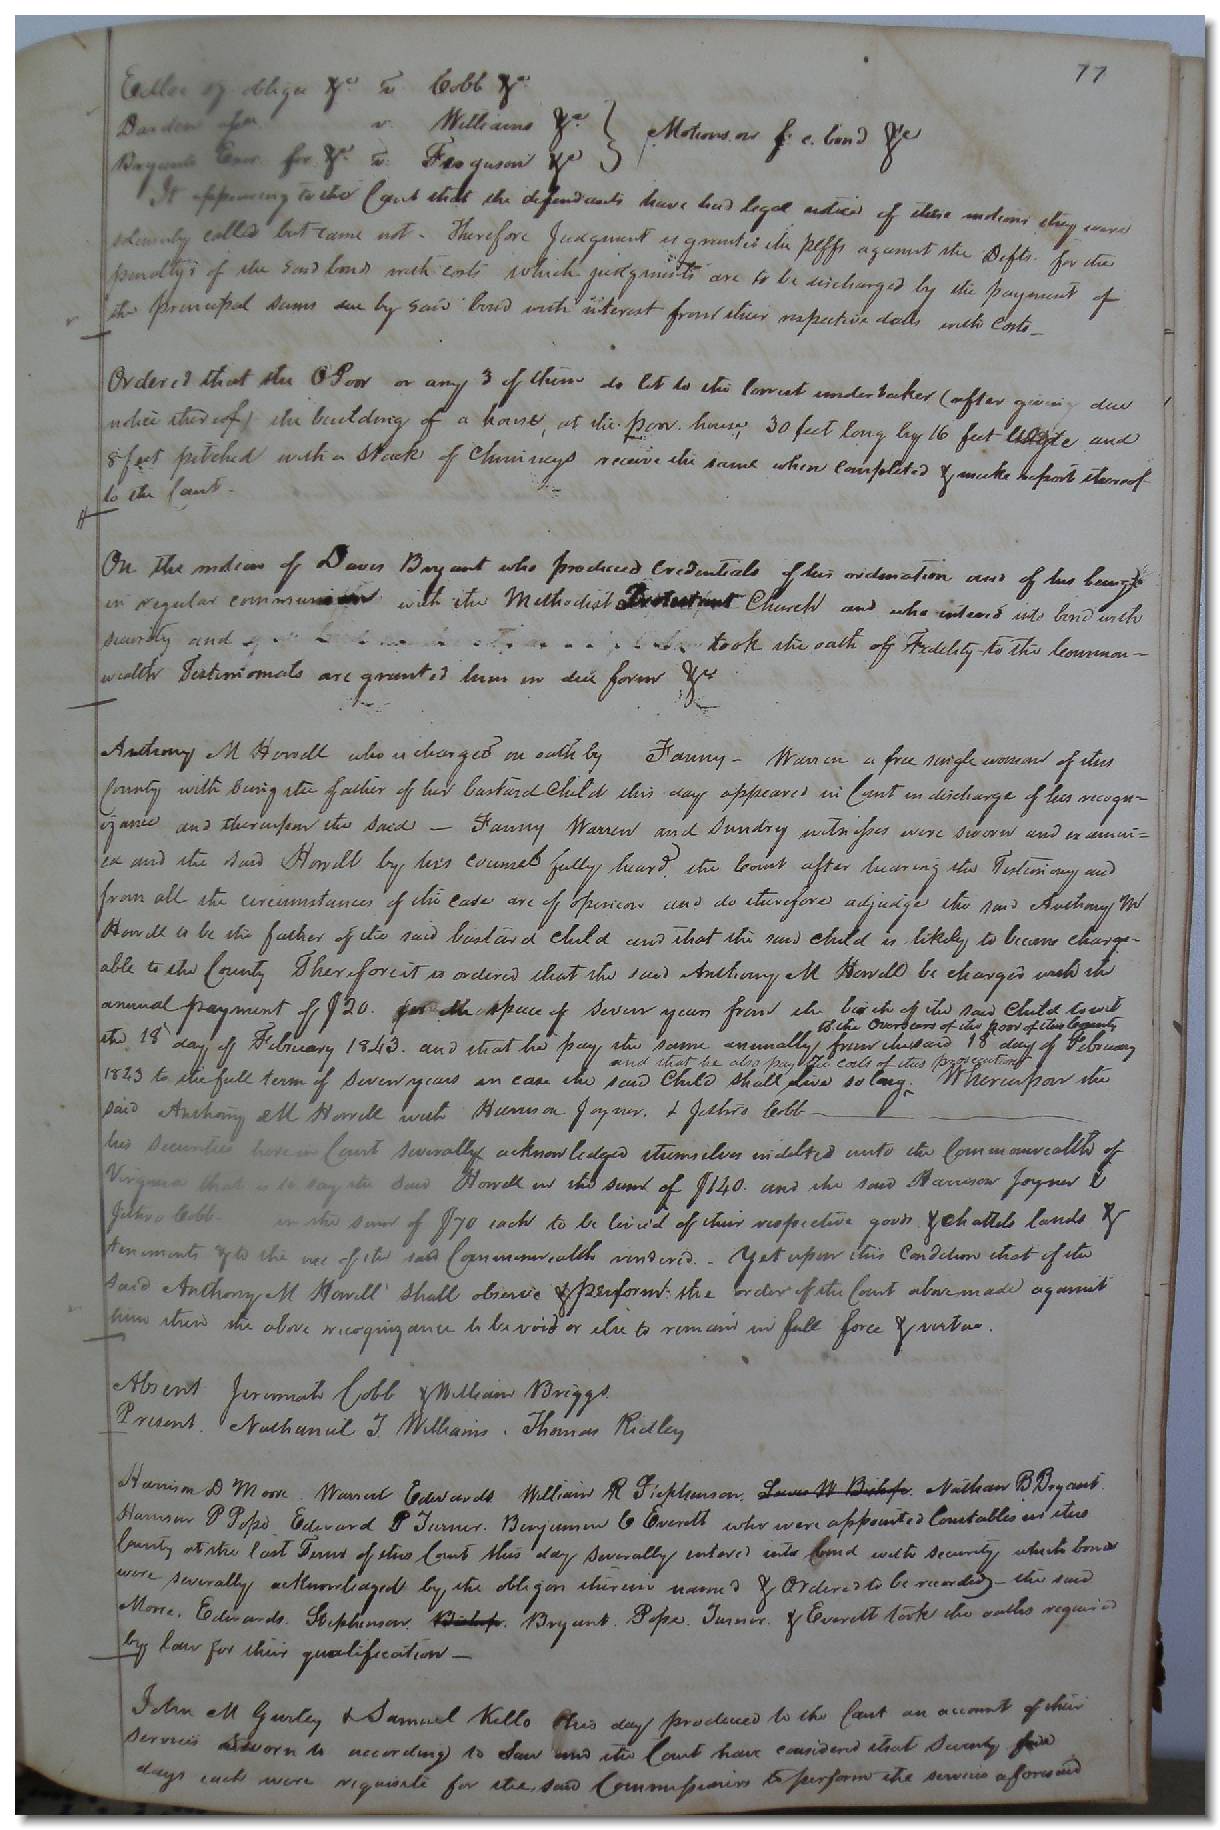 77
obligee &c v Cobb &c
Darden v. Williams &c } Motions on f. c. bond &c
Bryants Exor. for &c v. Ferguson &c
It appearing to the Court that the defendants have had legal notice of these motions they were
solemnly called but came not. Therefore Judgment is granted the plffs against the Defts. for the
penalty's of the said bonds with costs which judgments are to be discharged by the payment of
the principal sums due by said bond with interest from their respective dates with costs_
Ordered that the O Poor or any 3 of them do let to the lowest undertaker (after giving due
notice thereof) the building of a house, at the poor house, 30 feet long by 16 feet and
8 feet pitched with a Stack of Chimneys receive the same when completed & make report thereof
to the Court.
On the motion of Davis Bryant who produced Credentials of his ordination and of his being
in regular communion with the Methodist Protestant Church and who entered into bond with
security and took the oath of Fidelity to the Common-
wealth Testimonials are granted him in due form &c
Anthony M Howell who is charged on oath by Fanny - Warren a free single woman of this
County with being the father of her bastard Child this day appeared in Court in discharge of his recogn-
izance and thereupon the said — Fanny Warren and Sundry witnesses were sworn and examin=
ed and the said Howell by his counsel fully heard, the Court after hearing the Testimony and
from all the circumstances of the case are of opinion and do therefore adjudge the said Anthony M
Howell to be the father of the said bastard child and that the said child is likely to become charge-
able to the County Therefore it is ordered that the said Anthony M Howell be charged with the
annual payment of $20. for the space of Seven years from the birth of the said Child to wit
to the Overseers of the poor of this County
the 18 day of February 1843. and that he pay the same annually from the said 18 day of February
and that he also pay the costs of this prosecution
1843 to the full term of Seven years in case the said Child shall live so long. Whereupon the
said Anthony M Howell with Harrison Joyner. & Jethro Cobb
his Securities here in Court severally acknowledged themselves indebted unto the Commonwealth of
Virginia that is to say the said Howell in the sum of $140. and the said Harrison Joyner &
Jethro Cobb in the sum of $70 each to be levied of their respective goods & chattels lands &
tenements & to the use of the said Commonwealth rendered. - Yet upon this Condition that if the
said Anthony M Howell shall observe & perform the order of the Court above made against
him then the above recognizance to be void or else to remain in full force & virtue.
Absent Jeremiah Cobb & William Briggs.
Present. Nathaniel T. Williams. Thomas Ridley
Harrison D Moore. Warren Edwards William R Stephenson. Lewis W Bishop. Nathan B Bryant.
Harrison P Pope. Edward P Turner. Benjamin C Everett who were appointed Constables in this
County at the last Term of this Court this day severally entered into bond with security which bonds
were severally acknowledged by the obligors therein named & Ordered to be recorded - the said
Moore. Edwards. Stephenson. Bishop. Bryant. Pope. Turner. & Everett took the oaths required
by law for their qualification—
John M Gurley & Samuel Kello this day produced to the Court an account of their
services sworn to according to Law and the Court have considered that Seventy five
days each were requisite for the said Commissioners to perform the services aforesaid